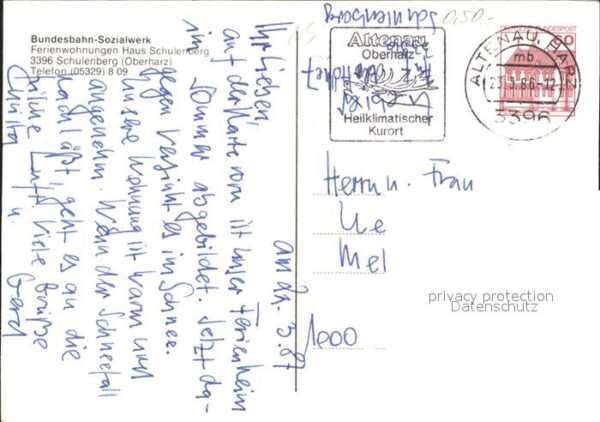 Bundesbahn-Sozialwerk
Ferienwohnungen Haus Schulenberg
3396 Schulenberg (Oberharz)
Telefon (05329) 8 09
Schulenberg
0,50.-
Altenau
Oberharz
Heilklimatischer
Kurort
ALTENAU, HARZ
mb
-12
3396
60
Ihr Lieben,
auf der Karte vorn ist unser Ferienheim
im Sommer abgebildet. Jetzt da-
gegen versinkt es im Schnee.
Unsere Wohnung ist warm und
angenehm. Wenn der Schneefall
nachläßt, geht es an die
frische Luft. Viele Grüße
u. Gerd
Herrn u. Frau
Ue
Mel
1000
privacy protection
Datenschutz